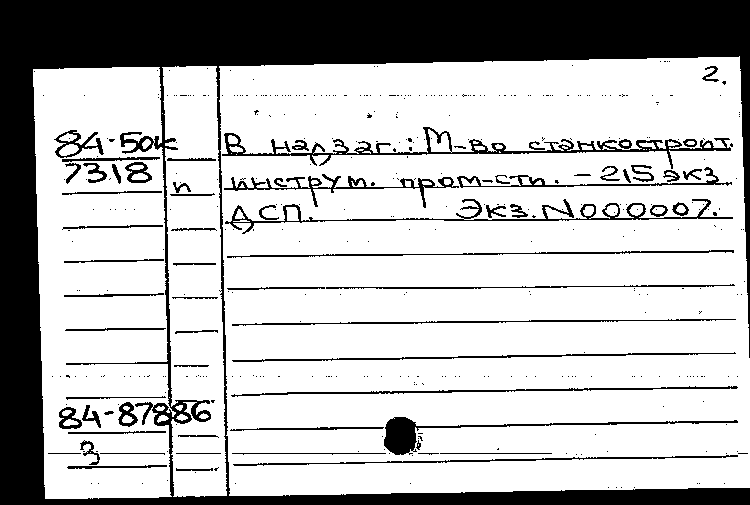 2.
84-50к В надзаг.: М-во станкостроит.
7318 п инструм. пром-сти. - 215 экз
ДСП. Экз. N000007.
84-87886
3